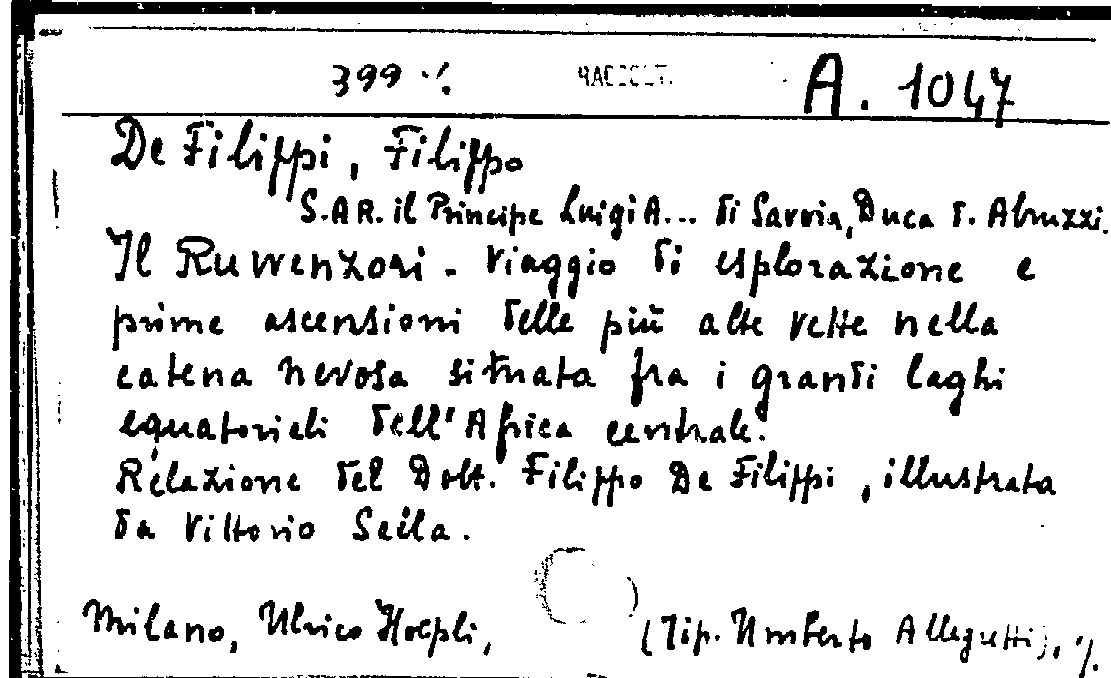 399 ./.
A. 1047
De Filippi, Filippo
S.A.R. il Principe Luigi A... di Savoia, Duca d. Abruzzi.
Il Ruwenzori - Viaggio di esplorazione e
prime ascensioni delle più alte vette nella
catena nevosa situata fra i grandi laghi
equatoriali dell'Africa centrale.
Relazione del Dott. Filippo De Filippi, illustrata
da Vittorio Sella.
Milano, Ulrico Hoepli, (Tip. Umberto Allegretti), ./.